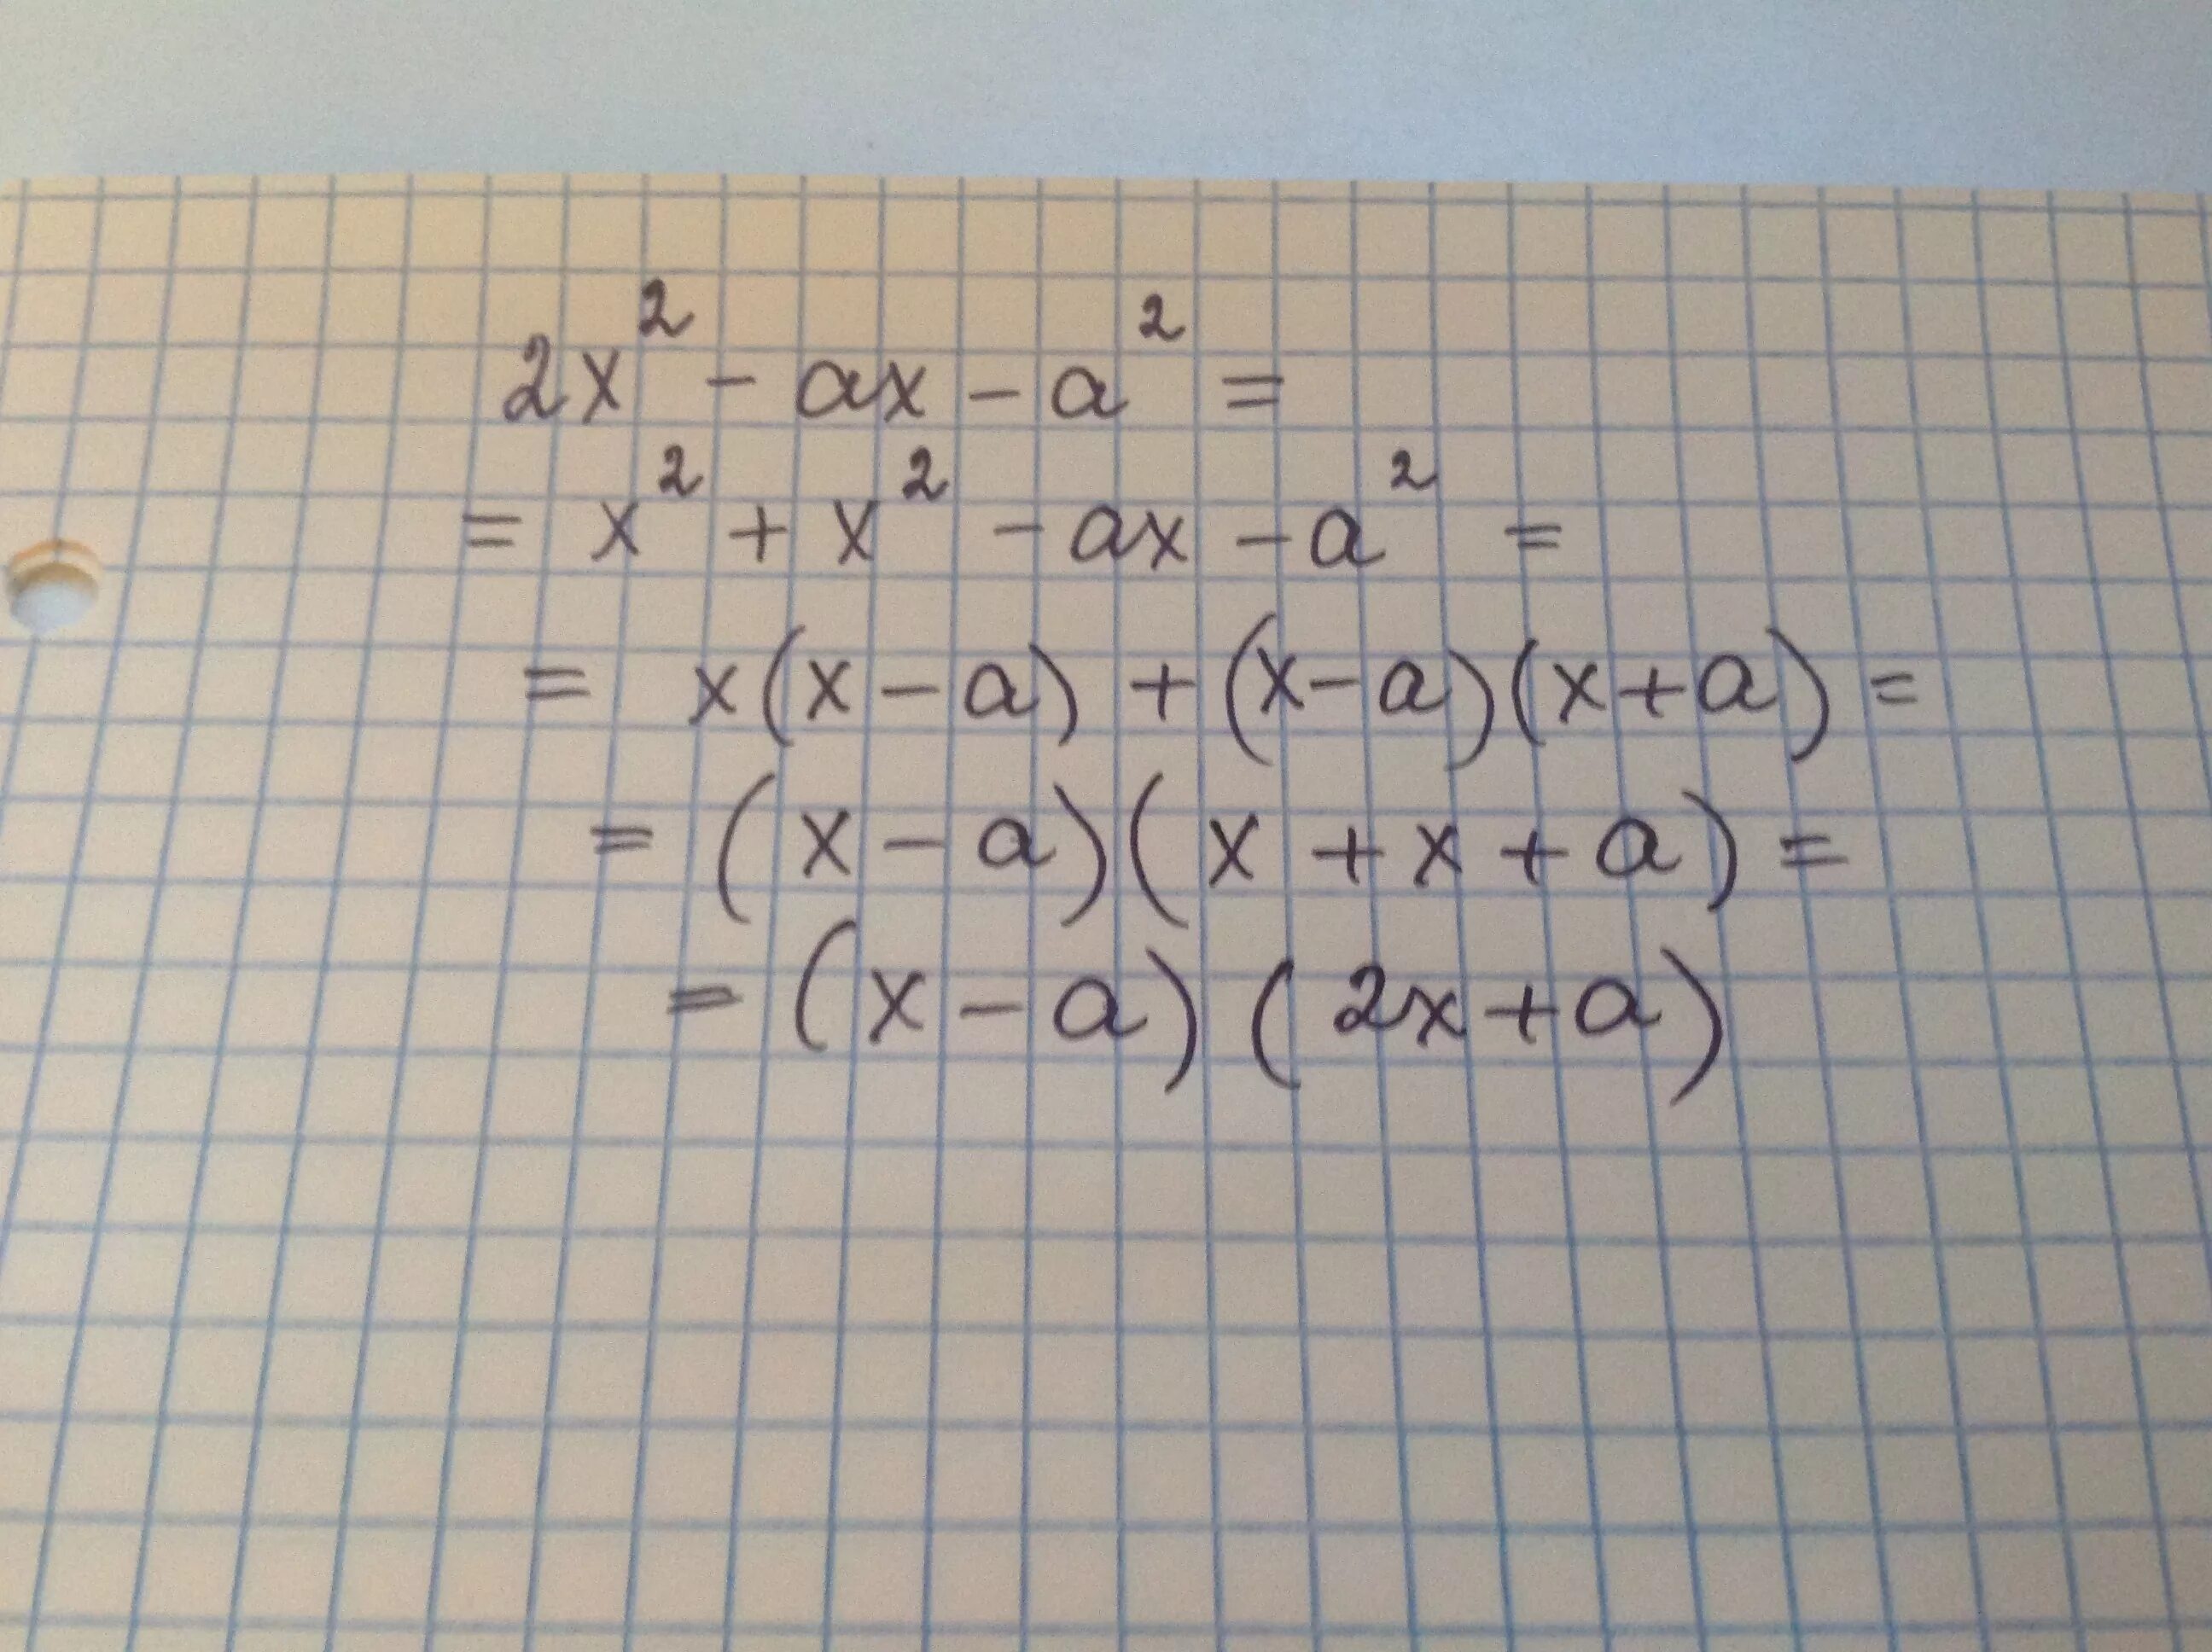 2x² - ax - a² =
= x² + x² - ax - a² =
= x(x - a) + (x - a)(x + a) =
= (x - a)(x + x + a) =
= (x - a)(2x + a)